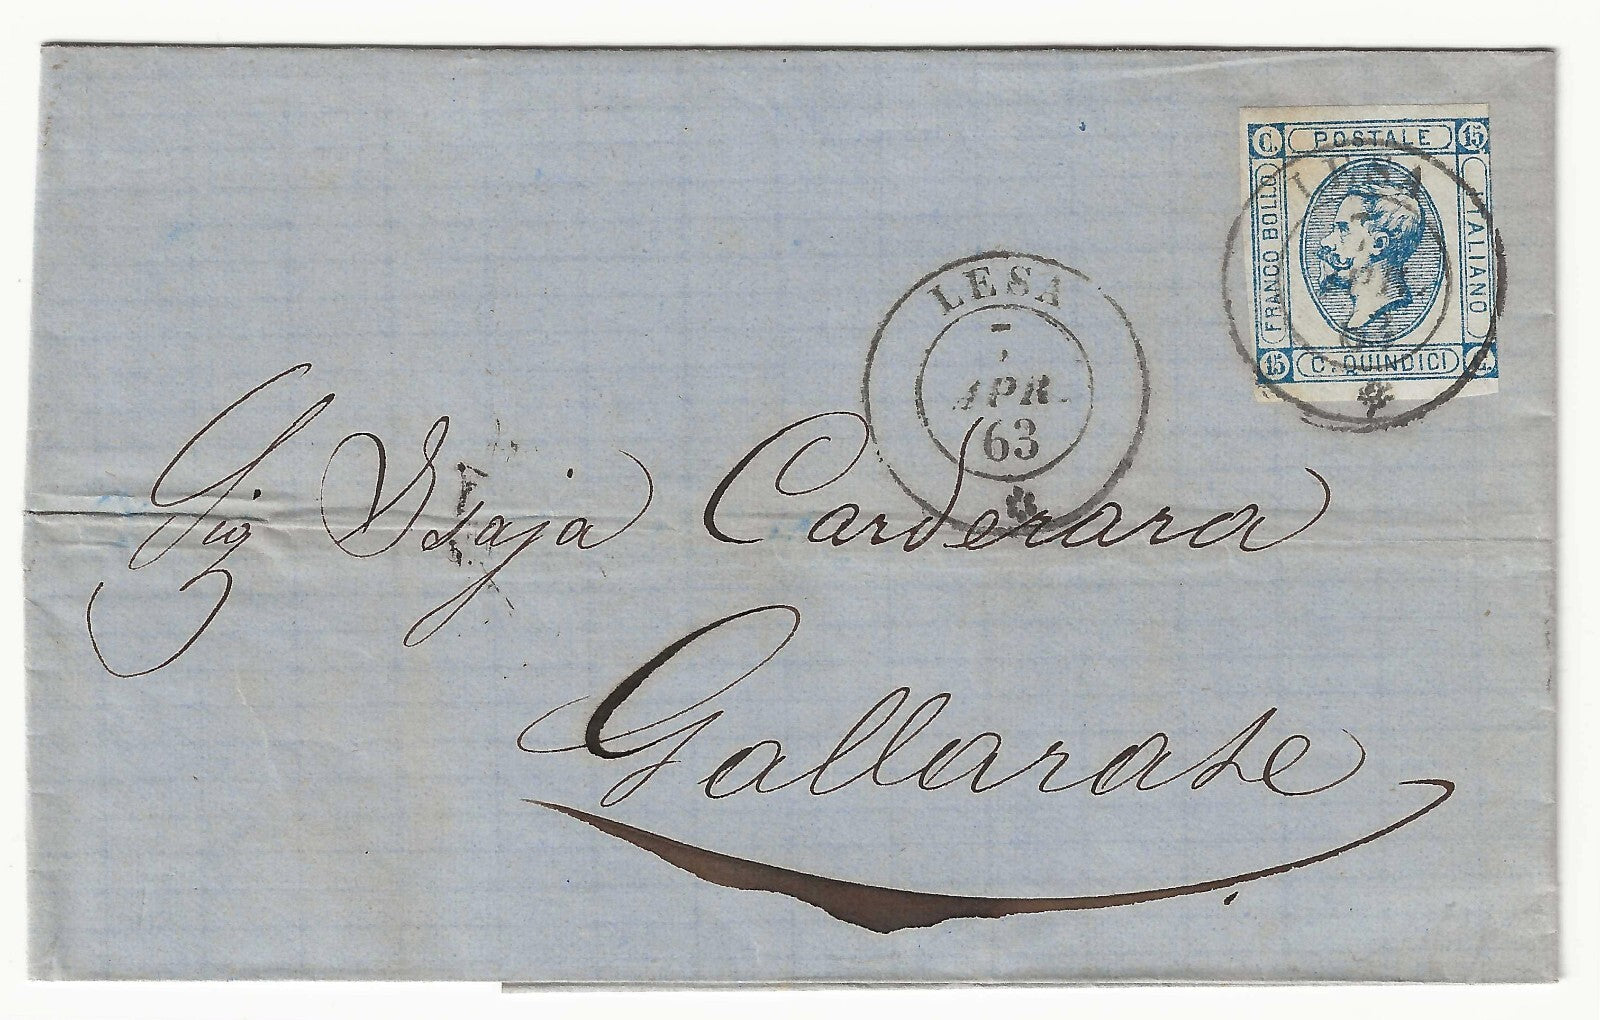 C. POSTALE 15
FRANCO BOLLO
ITALIANO
15 C. QUINDICI C.
LESA
APR
63
LESA
APR.
63
Sig Isaja Carderara
Gallarate